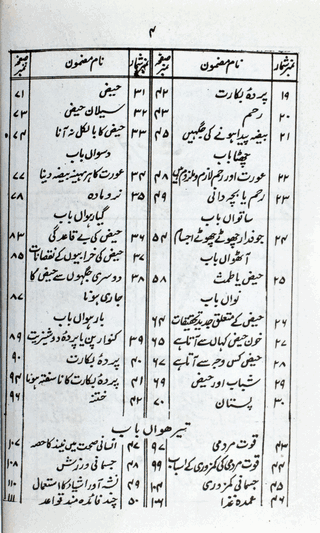 ۴
نمبر شمار نام مضمون صفحہ نمبر
۱۹ پردۂ بکارت ۴۲
۲۰ رحم ۴۳
۲۱ بیضہ پیدا ہونے کی جگہیں ۴۵
چھٹا باب
۲۲ عورت اور رحم لازم و ملزوم ہیں ۴۸
۲۳ رحم یا بچہ دانی ۴۹
ساتواں باب
۲۴ جوفدار چھوٹے چھوٹے اجسام ۵۴
آٹھواں باب
۲۵ حیض یا طمث ۵۸
نواں باب
۲۶ حیض کے متعلق جدید تحقیقات ۶۴
۲۷ خون حیض کہاں سے آتا ہے ۶۵
۲۸ حیض کس وجہ سے آتا ہے ۶۷
۲۹ شباب اور حیض ۶۹
۳۰ پستان ۷۰
نمبر شمار نام مضمون صفحہ نمبر
۳۱ حیض ۷۱
۳۲ سیلان حیض ۷۳
۳۳ حیض کا بالکل نہ آنا ۷۴
دسواں باب
۳۴ عورت کا ہر مہینہ بیضہ دینا ۷۷
۳۵ نر و مادہ ۷۸
گیارہواں باب
۳۶ حیض کی بے قاعدگی ۸۳
۳۷ حیض کی خرابیوں کے نقصانات ۸۵
۳۸ دوسری جگہوں سے حیض کا
جاری ہونا ۸۷
بارہواں باب
۳۹ کنوارپن یا پردہ دوشیزیت ۸۹
۴۰ پردۂ بکارت ۹۰
۴۱ پردۂ بکارت کا ناسفتہ ہونا ۹۴
۴۲ ختنہ ۹۶
تیرھواں باب
۴۳ قوت مردمی ۹۷
۴۴ قوت مردمی کی کمزوری کے اسباب ۹۹
۴۵ جسمانی کمزوری ۱۰۴
۴۶ عمدہ غذا ۱۰۶
۴۷ انسانی صحت میں نیند کا حصہ ۱۰۷
۴۸ جسمانی ورزش ۱۰۸
۴۹ نشہ آور اشیاء کا استعمال ۱۱۰
۵۰ چند فائدہ مند قواعد ۱۱۱